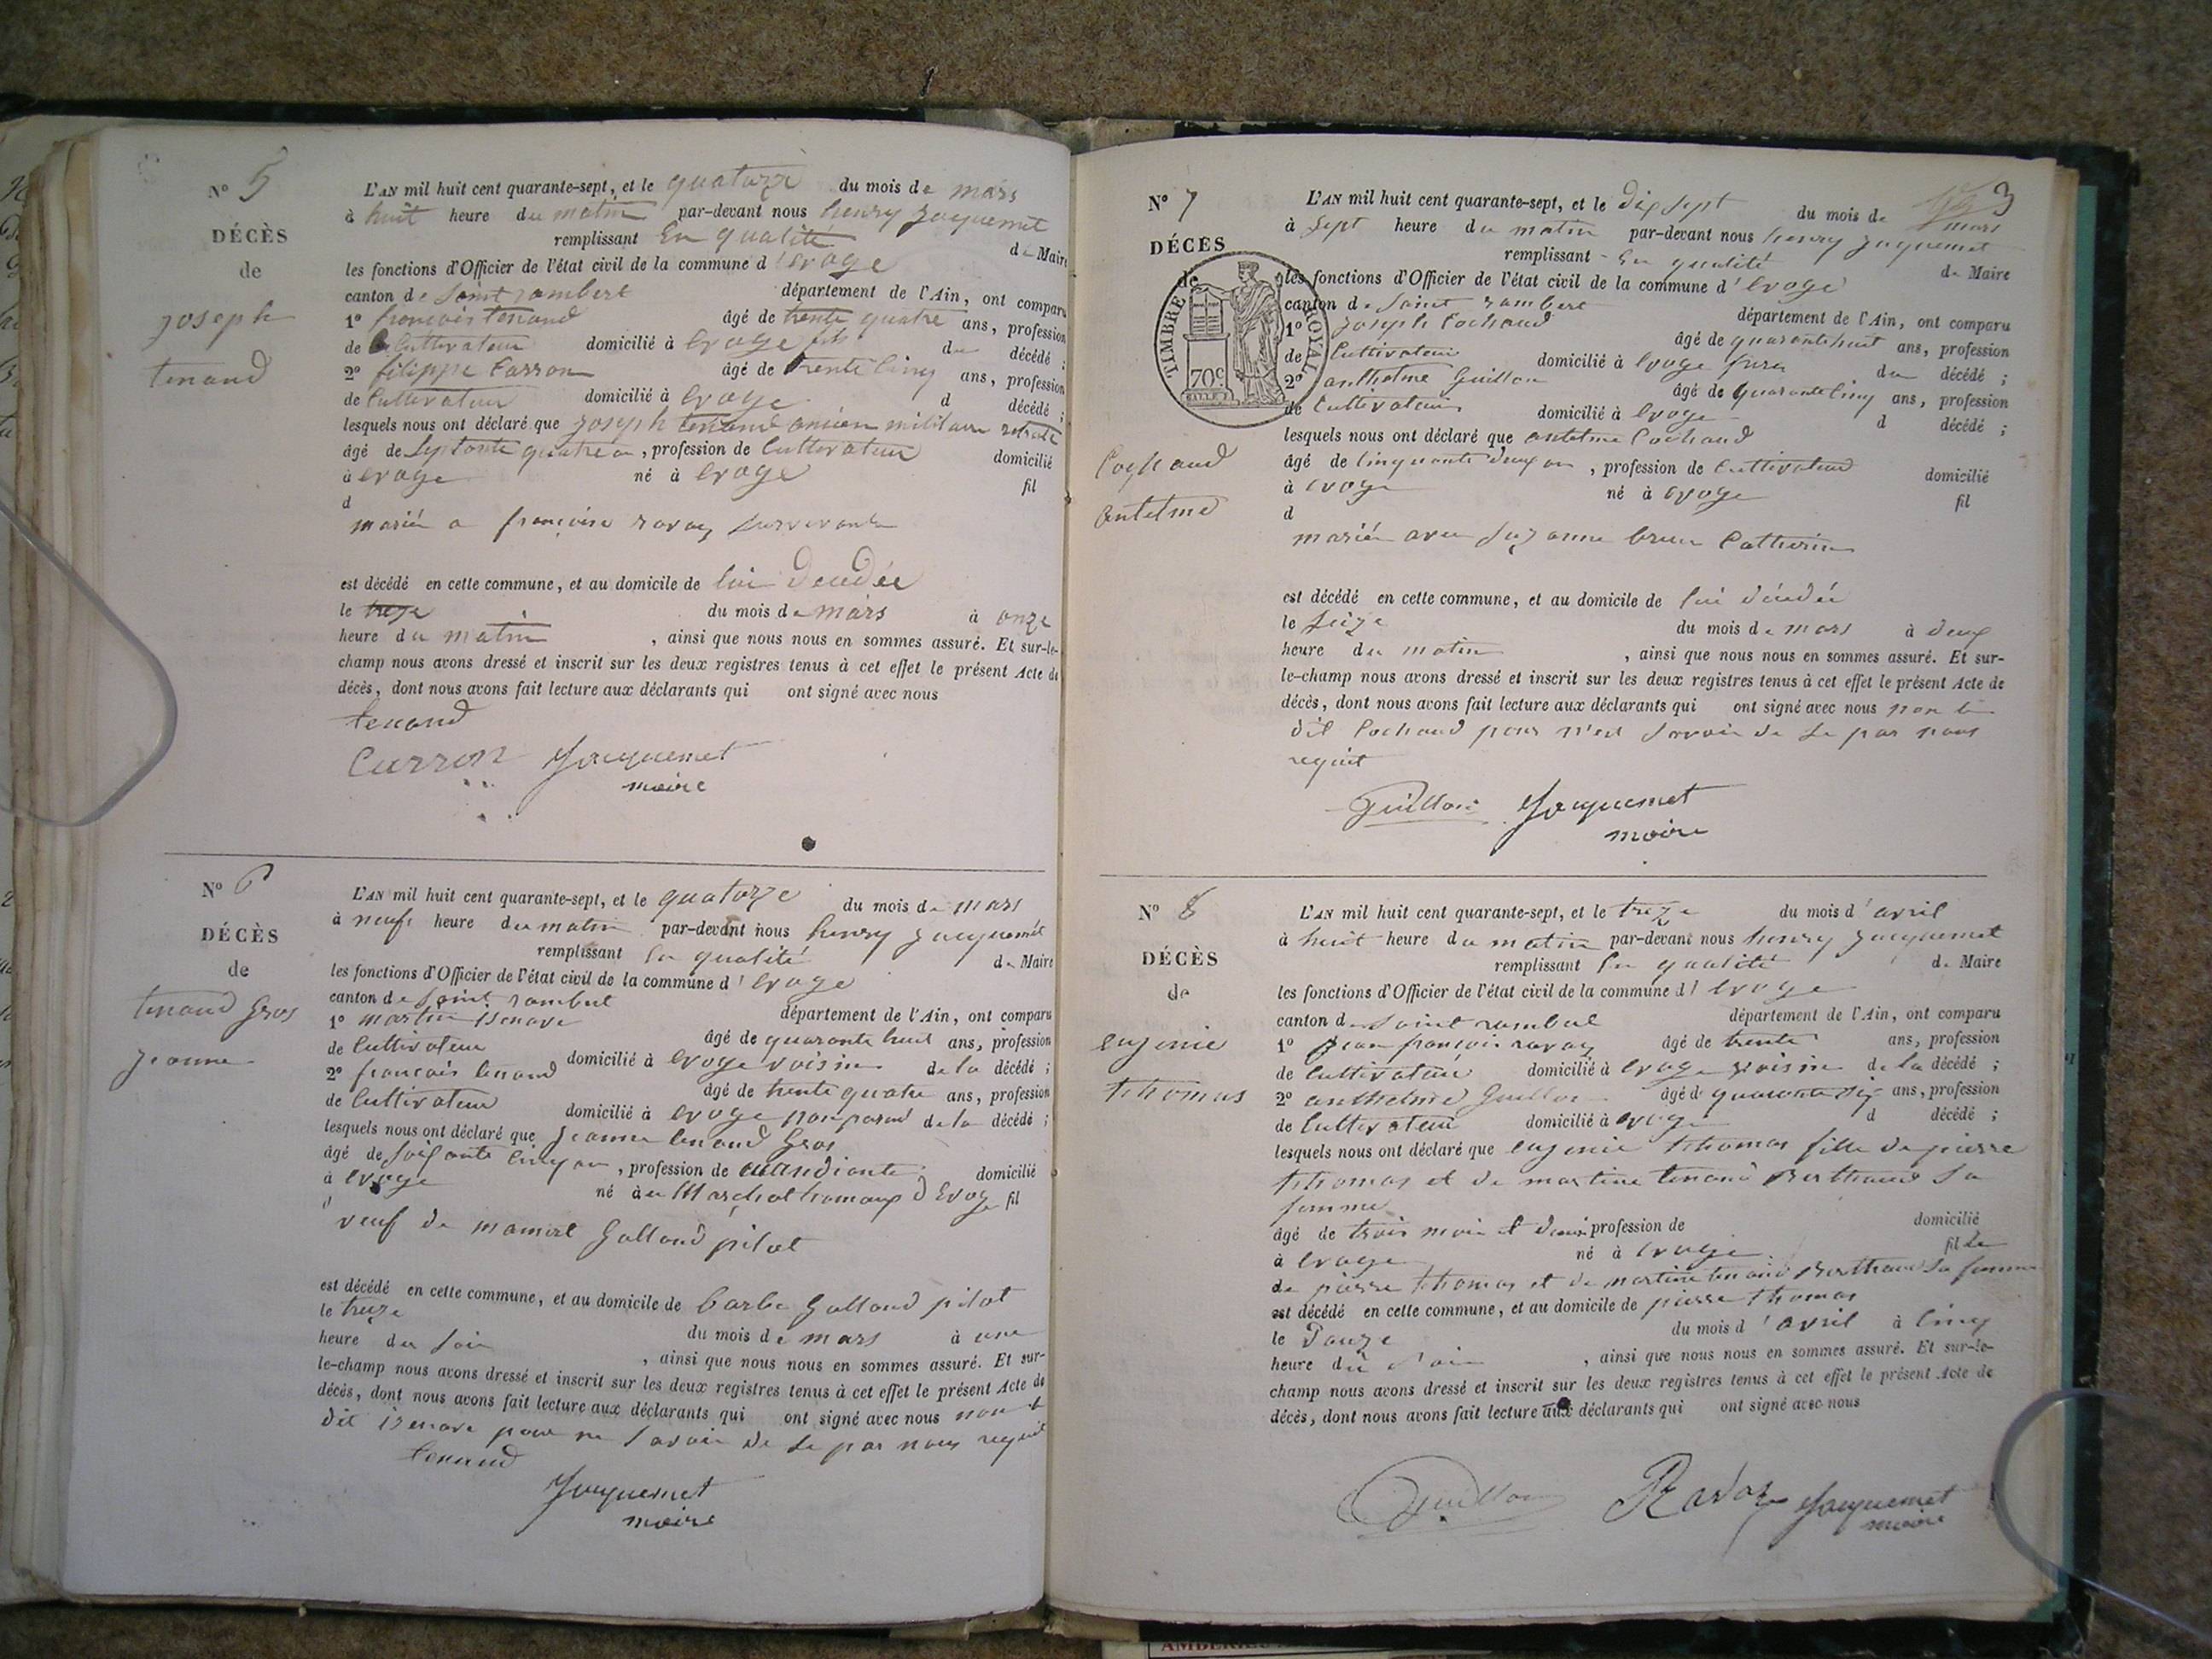 N° 5
DÉCÈS
de
joseph
tenand
L'AN mil huit cent quarante-sept, et le quatorze du mois de mars
à huit heure du matin par-devant nous henry jacquemet
remplissant En qualité de Maire
les fonctions d'Officier de l'état civil de la commune d'evoge
canton de Saint rambert département de l'Ain, ont comparu
1° francois tenand âgé de trente quatre ans, profession
de Cultivateur domicilié à Evoge fils du décédé ;
2° filippe Carron âgé de trente Cinq ans, profession
de Cultivateur domicilié à Evoge d décédé ;
lesquels nous ont déclaré que joseph tenand ancien militaire retraité
âgé de Septante quatre an, profession de Cultivateur domicilié
à evoge né à evoge fil
d
mariée a françoise ravaz survivante
est décédé en cette commune, et au domicile de lui decedée
le treze du mois de mars à onze
heure du matin, ainsi que nous nous en sommes assuré. Et sur-le-
champ nous avons dressé et inscrit sur les deux registres tenus à cet effet le présent Acte de
décès, dont nous avons fait lecture aux déclarants qui ont signé avec nous
tenand
Carron Jacquemet
maire
N° 6
DÉCÈS
de
tenand Gros
jeanne
L'AN mil huit cent quarante-sept, et le quatorze du mois de mars
à neuf heure du matin par-devant nous henry jacquemet
remplissant En qualité de Maire
les fonctions d'Officier de l'état civil de la commune d'evoge
canton de Saint rambert département de l'Ain, ont comparu
1° martin isenave âgé de quarante huit ans, profession
de Cultivateur domicilié à Evoge voisin de la décédé ;
2° francois tenand âgé de trente quatre ans, profession
de Cultivateur domicilié à evoge non parend de la décédé ;
lesquels nous ont déclaré que jeanne tenand Gros
âgé de soixante Cinq an, profession de mandiante domicilié
à Evoge né à d'Evoge fil
d
veuf de mamert Galland pilot
est décédé en cette commune, et au domicile de barbe Galland pilot
le treze du mois de mars à une
heure du soir, ainsi que nous nous en sommes assuré. Et sur-
le-champ nous avons dressé et inscrit sur les deux registres tenus à cet effet le présent Acte de
décès, dont nous avons fait lecture aux déclarants qui ont signé avec nous non le
dit isenave pour ne savoir de se par nous requit
tenand
Jacquemet
maire
3
N° 7
DÉCÈS
de
TIMBRE ROYAL
70c
Cochand
antelme
L'AN mil huit cent quarante-sept, et le dix sept du mois de mars
à sept heure du matin par-devant nous henry jacquemet
remplissant En qualité de Maire
les fonctions d'Officier de l'état civil de la commune d'evoge
canton de Saint rambert département de l'Ain, ont comparu
1° joseph Cochand âgé de quarante huit ans, profession
de Cultivateur domicilié à Evoge frere du décédé ;
2° anthelme Guillon âgé de quarante Cinq ans, profession
de Cultivateur domicilié à Evoge d décédé ;
lesquels nous ont déclaré que antelme Cochand
âgé de Cinquante deux an, profession de Cultivateur domicilié
à evoge né à evoge fil
d
mariée avec suzanne Catherine
est décédé en cette commune, et au domicile de lui décédée
le seize du mois de mars à deux
heure du matin, ainsi que nous nous en sommes assuré. Et sur-
le-champ nous avons dressé et inscrit sur les deux registres tenus à cet effet le présent Acte de
décès, dont nous avons fait lecture aux déclarants qui ont signé avec nous non le
dit Cochand pour savoir de se par nous
requit
Guillon Jacquemet
maire
N° 8
DÉCÈS
de
eugenie
thomas
L'AN mil huit cent quarante-sept, et le treze du mois d'avril
à huit heure du matin par-devant nous henry jacquemet
remplissant En qualité de Maire
les fonctions d'Officier de l'état civil de la commune d'evoge
canton de Saint rambert département de l'Ain, ont comparu
1° jean françois ravaz âgé de trente ans, profession
de Cultivateur domicilié à evoge voisin de la décédé ;
2° anthelme Guillon âgé de quarante six ans, profession
de Cultivateur domicilié à evoge d décédé ;
lesquels nous ont déclaré que eugenie thomas fille de pierre
thomas et de martine tenand Berthaud sa
femme
âgé de trois mois et demi profession de domicilié
à evoge né à evoge fille
de pierre thomas et de martine tenand Berthaud sa femme
est décédé en cette commune, et au domicile de pierre thomas
le Douze du mois d'avril à Cinq
heure du soir, ainsi que nous nous en sommes assuré. Et sur-le-
champ nous avons dressé et inscrit sur les deux registres tenus à cet effet le présent Acte de
décès, dont nous avons fait lecture aux déclarants qui ont signé avec nous
Guillon Ravaz Jacquemet
maire